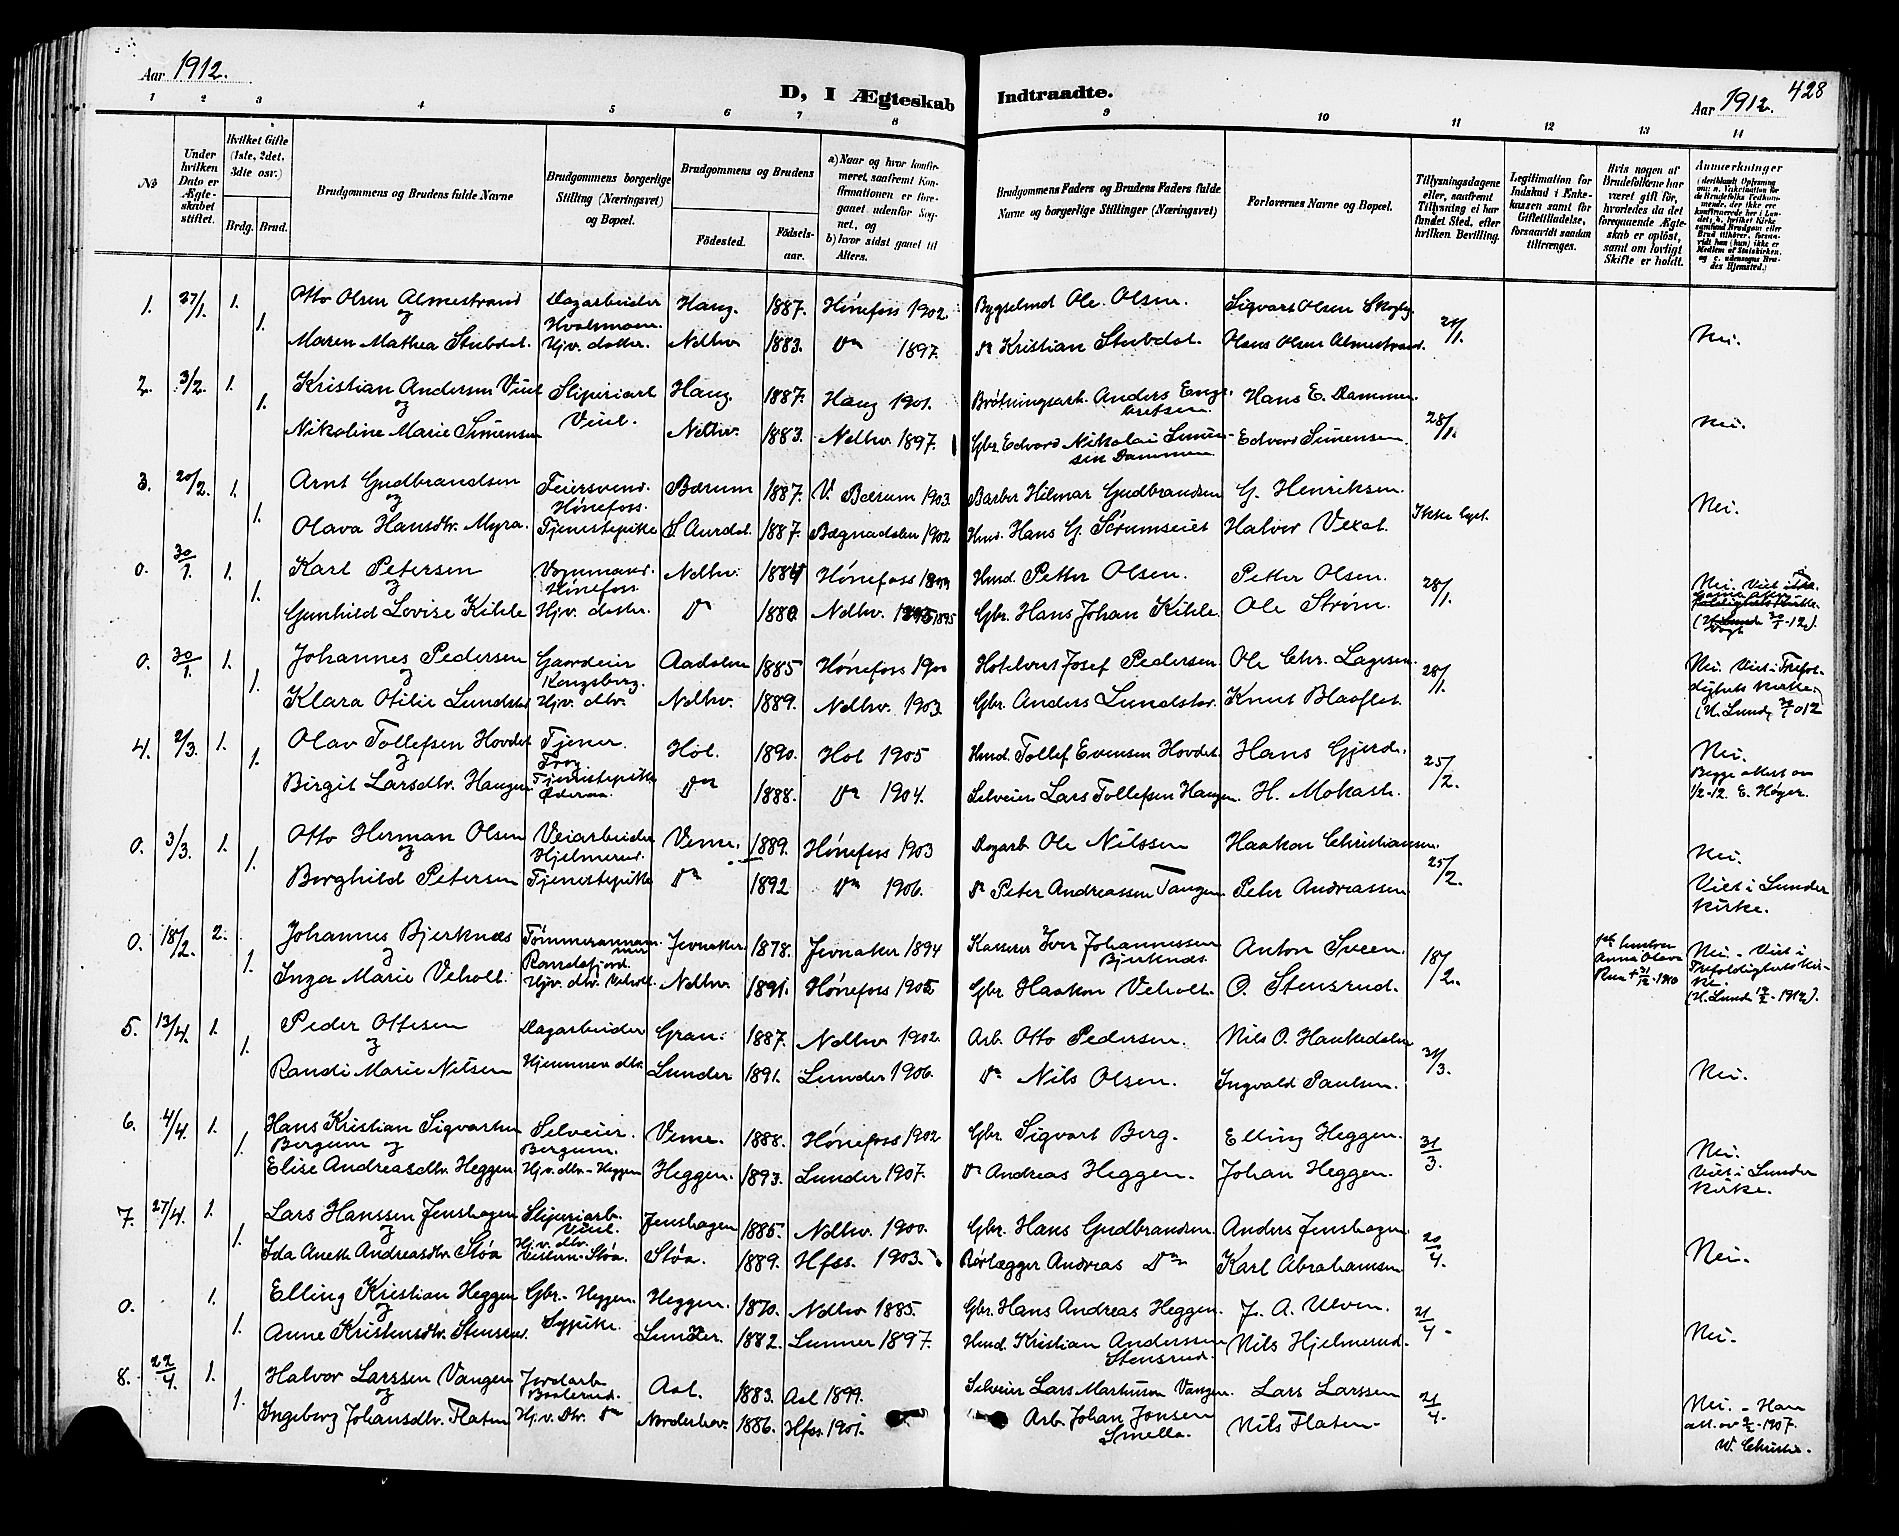 Aar 1912.
D, I Ægteskab Indtraadte.
Aar 1912. 428
1 2 3 4 5 6 7 8 9 10 11 12 13 14
No
Under hvilken Dato er Ægteskabet stiftet.
Hvilket Gifte (1ste, 2det, 3dte osv.)
Brdg. Brud.
Brudgommens og Brudens fulde Navne
Brudgommens borgerlige Stilling (Næringsvei) og Bopæl.
Brudgommens og Brudens
Födested. Födselsaar.
a) Naar og hvor konfirmeret, saafremt Konfirmationen er foregaaet udenfor Sognet, og
b) hvor sidst gaaet til Alters.
Brudgommens Faders og Brudens Faders fulde Navne og borgerlige Stillinger (Næringsvei)
Forlovernes Navne og Bopæl.
Tillysningsdagene eller, saafremt Tillysning ei har fundet Sted, efter hvilken Bevilling.
Legitimation for Indskud i Enkekassen samt for Giftetilladelse, forsaavidt saadan tiltrænges.
Hvis nogen af Brudefolkene har været gift för, hvorledes da det foregaaende Ægteskab er oplöst, samt om lovligt Skifte er holdt.
Anmærkninger
1. 27/1. 1. Otto Olsen Almestrand Dagarbeider Hvalsmoen. Haug. 1887. Hønefoss 1902. Bygselmd Ole Olsen. Sigvart Olsen Skogly. 21/1.
og
1. Maren Mathea Stubdal. Hjv. datter. Ndhv. 1883. Do 1897. Do Kristian Stubdal. Olaus Olsen Almestrand. Nei.
2. 3/2. 1. Kristian Andersen Viul Sliperiarb Viul. Haug. 1887. Haug 1901. Brøtningsarb. Anders Engebretsen. Hans E. Dammen. 28/1.
og
1. Nikoline Marie Simensen Ndhv. 1883. Ndhv. 1897. Gbr. Edvard Nikolai Simensen Dammen Edvard Simensen. Nei.
3. 20/2. 1. Arnt Gudbrandsen Feiersvend. Hønefoss. Bærum 1887. V. Bærum 1903. Barber Hilmar Gudbrandsen G. Henriksen. Ikke lyst.
og
1. Olava Hansdtr. Myra. Tjenestepike S. Aurdal. 1887. Bægnadalen 1902 Hms. Hans G. Sørumseiet Halvor Vexal. Nei.
0. 30/1. 1. Karl Petersen Vognmand. Hønefoss. Ndhv. 1884 Hønefoss Hmd. Petter Olsen. Petter Olsen. 28/1.
og
1. Gunhild Lovise Kihle Hjv. datter. Do 1880 Ndhv. 1895 Gbr. Hans Johan Kihle. Ole Strøm. Nei.
0. 30/1. 1. Johannes Pedersen Gaardeier Kongsberg. Aadalen 1885 Hønefoss 1900 Hotelvert Josef Pedersen. Ole Chr. Lagesen. 28/1.
og
1. Klara Otilie Lundstad Hjv. dtr. Ndhv. 1889. Ndhv. 1903. Gbr. Anders Lundstad. Knut Blaaflat. Nei. Viet i Trefoldighets kirke. (U. Lund, 30/1 012
4. 2/3. 1. Olav Tollefsen Hovdet Tjener. Hol. 1890. Hol 1905 Hmd. Tollef Evensen Hovdet. Hans Gjerde. 25/2.
og
1. Birgit Larsdtr. Haugen Tjenestepike Do 1888. Do 1904. Selveier Lars Tollefsen Haugen. H. Mokastr. Nei. Begge attest av 1/2-12. E. Høyer.
0. 3/3. 1. Otto Herman Olsen Veiarbeider Hjelmerud. Veme. 1889. Hønefoss 1903 Dagarb. Ole Nilssen Haakon Christiansen. 25/2.
og
1. Borghild Petersen Tjenestepike Do 1892 Do 1906. Do Peter Andreassen Tangen Peter Andreassen Nei. Viet i Lunder kirke.
0. 18/2. 2. Johannes Bjerknæs Tømmerannammer Randsfjord. Jevnaker. 1878. Jevnaker 1894 Kasserer Iver Johannessen Bjerknæs. Anton Sveen. 18/2. Anna Olava Nei. - Viet i Trefoldighetskirke.
og
1. Inga Marie Veholt. Hjv. dtr. Veholt. Ndhv. 1891. Hønefoss 1905. Gbr Haakon Veholt. O. Stensrud. (U. Lund 19/2-1912).
5. 13/4. 1. Peder Ottesen Dagarbeider Gran. 1887. Ndhv. 1902. Arb. Otto Pedersen. Nils O. Haukedalen 31/3.
og
1. Randi Marie Nilsen Hjemmev. dtr. Lunder 1891. Lunder 1906. Do Nils Olsen. Ingvald Paulsen. Nei.
6. 4/4. 1. Hans Kristian Sigvartsen Bergum og Selveier. Bergum. Veme. 1888. Hønefoss 1902 Gbr. Sigvart Berg. Elling Heggen. 31/3.
1. Elise Andreasdtr. Heggen Hjv. dtr. - Heggen Heggen. 1893. Lunder 1907. Do Andreas Heggen. Johan Heggen. Nei. Viet i Lunder kirke.
7. 27/4. 1. Lars Hanssen Jenshagen Sliperiarb. Viul. Jenshagen 1885. Ndhv. 1900. Gbr. Hans Gudbrandsen Anders Jenshagen. 20/4.
og
1. Ida Aneth Andreasdtr. Støa Hjv. dtr. Støa. Støa. 1889. Hfss. 1903. Rørlægger Andreas Do Karl Abrahamsen Nei.
0. 1. Elling Kristian Heggen Gbr. - Heggen. Heggen. 1870. Ndhv 1885. Gbr. Hans Andreas Heggen. J. A. Ulven. 21/4.
og
1. Anne Kristensdtr. Stensrud. Sypike. Lunder. 1882. Lunner 1897. Hmd. Kristian Anderssen Stensrud. Nils Hjelmerud. Nei.
8. 22/4. 1. Halvor Larssen Vangen Jordarb. Aal. 1883. Aal 1899. Selveier Lars Martinsen Vangen. Lars Larssen 21/4.
og
1. Ingeborg Johansdtr. Flaten Hjv. Dtr. Do Norderhov. 1886. Hfss. 1901. Arb. Johan Jonsen Smella. Nils Flaten. Nei. - Ham att. av 2/2-1907. W. Christie.